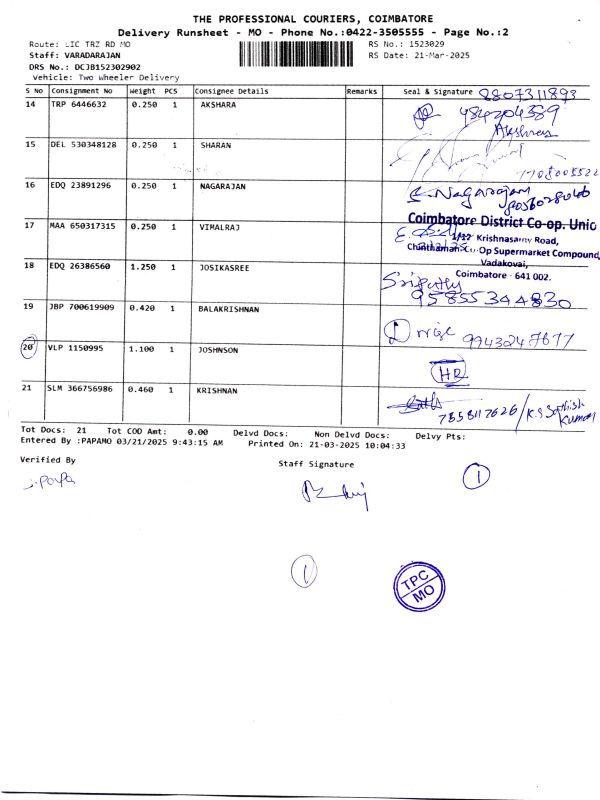 THE PROFESSIONAL COURIERS, COIMBATORE
Delivery Runsheet - MO - Phone No.:0422-3505555 - Page No.:2
Route: LIC TRZ RD MO RS No.: 1523029
Staff: VARADARAJAN RS Date: 21-Mar-2025
DRS No.: DCJB152302902
Vehicle: Two Wheeler Delivery
S No Consignment No Weight PCS Consignee Details Remarks Seal & Signature 8807311893
14 TRP 6446632 0.250 1 AKSHARA
Akshara
15 DEL 530348128 0.250 1 SHARAN
16 EDQ 23891296 0.250 1 NAGARAJAN E. Nagarajan
Coimbatore District Co-op. Unio
17 MAA 650317315 0.250 1 VIMALRAJ 1/27 Krishnasamy Road,
Co-Op Supermarket Compound,
Vadakovai,
18 EDQ 26386560 1.250 1 JOSIKASREE Coimbatore - 641 002.
95855344830
19 JBP 700619909 0.420 1 BALAKRISHNAN
9943247677
20 VLP 1150995 1.100 1 JOSHNSON
HR
21 SLM 366756986 0.460 1 KRISHNAN
7858117626 / K.S Sathish Kumar
Tot Docs: 21 Tot COD Amt: 0.00 Delvd Docs: Non Delvd Docs: Delvy Pts:
Entered By :PAPAMO 03/21/2025 9:43:15 AM Printed On: 21-03-2025 10:04:33
Verified By Staff Signature
J.Papa
1
1
TPC
MO